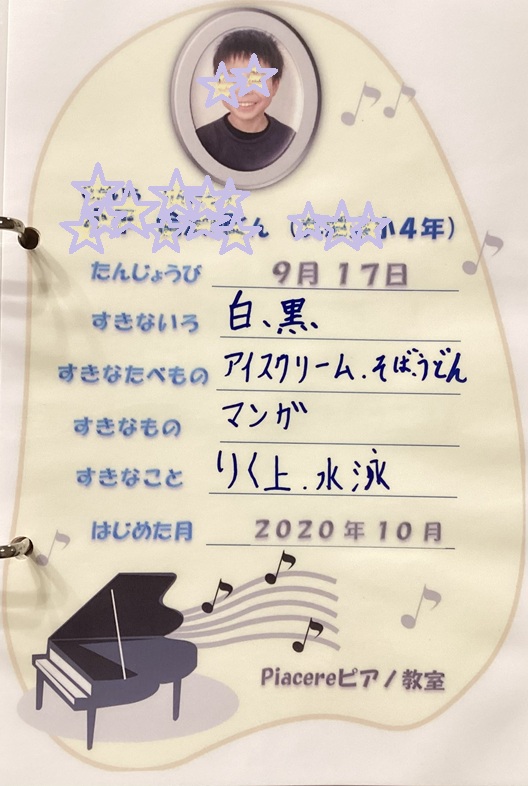 さん (小4年)
たんじょうび 9月17日
すきないろ 白、黒、
すきなたべもの アイスクリーム.そば.うどん
すきなもの マンガ
すきなこと りく上.水泳
はじめた月 2020年10月
Piacereピアノ教室